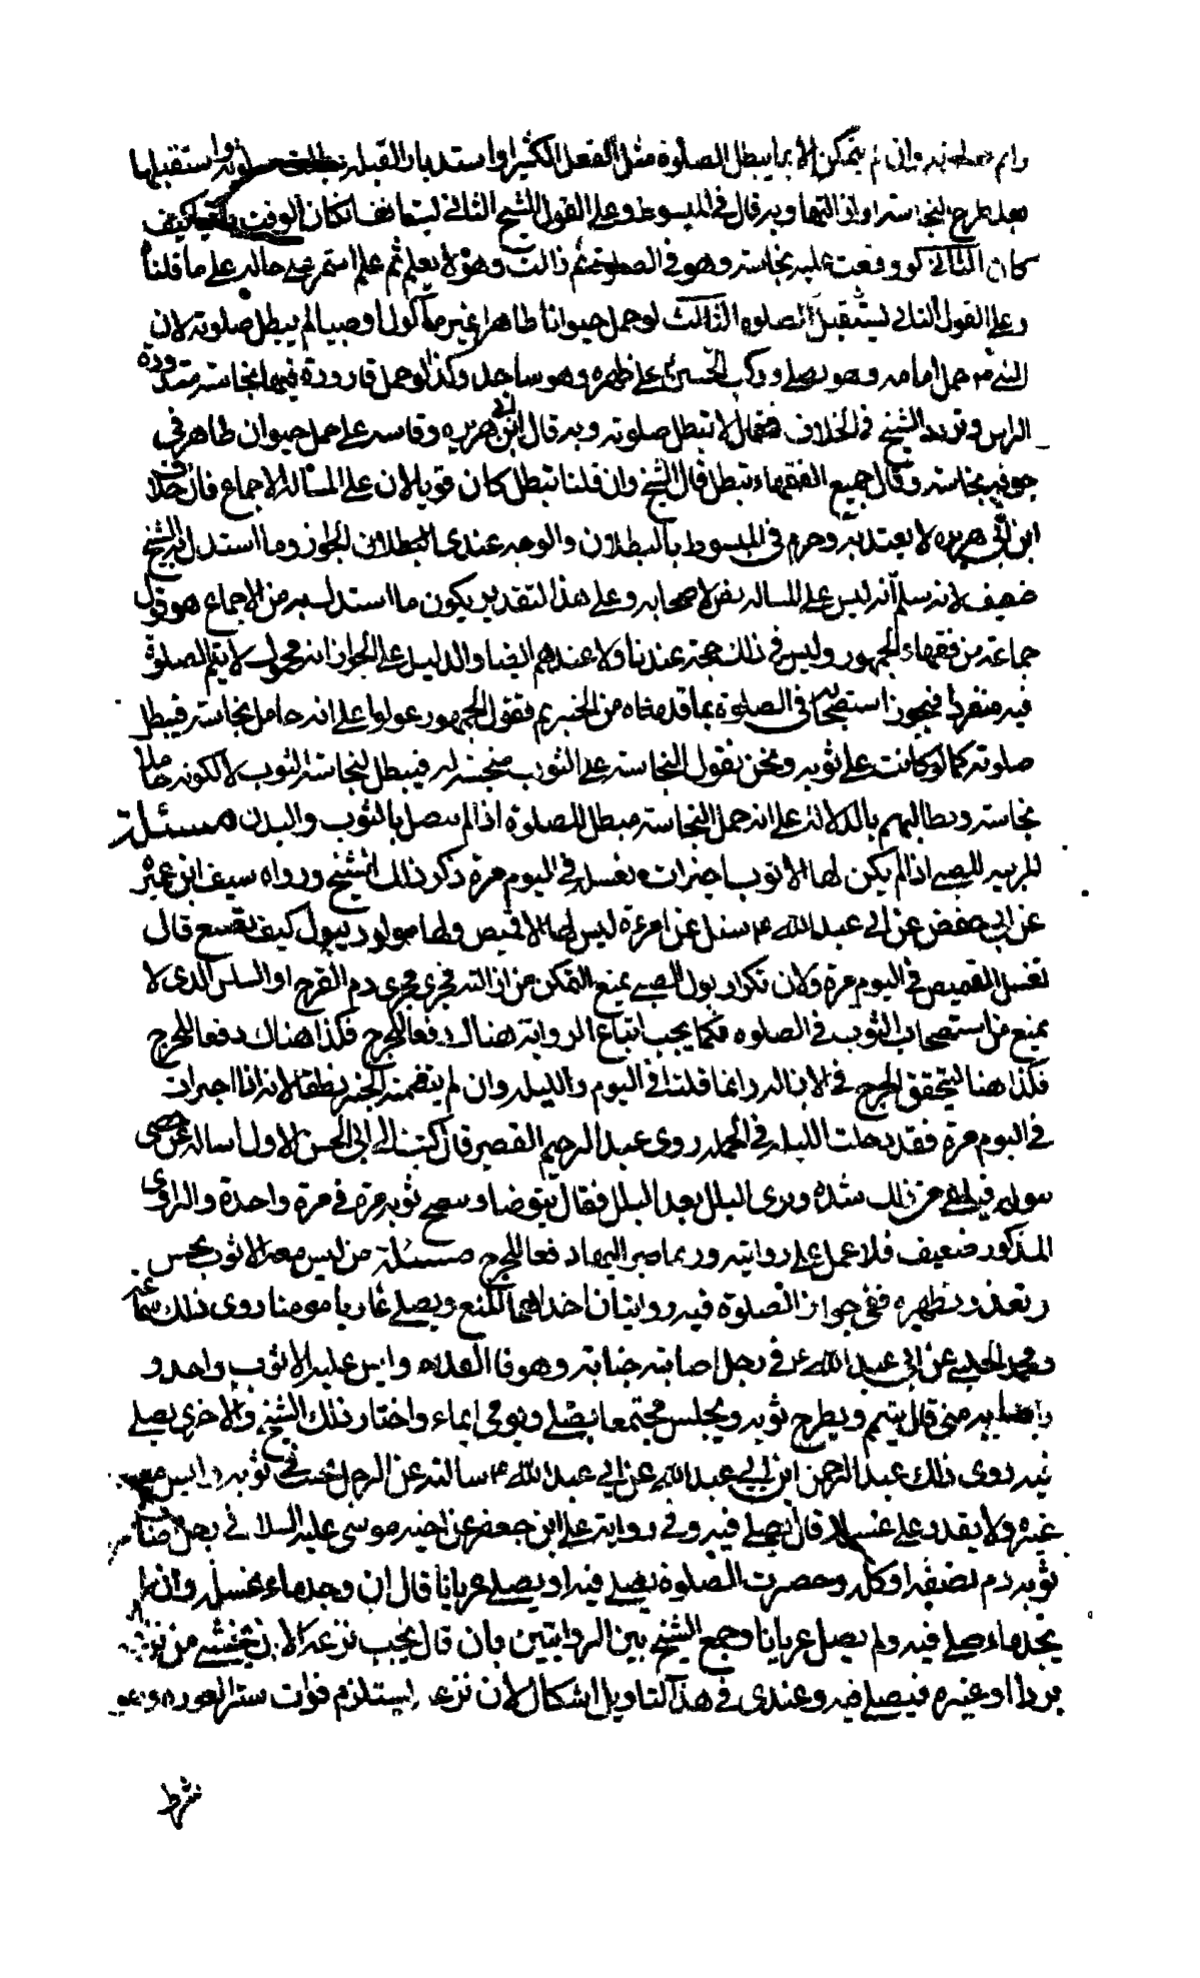 وان لم يتمكن الا بما يبطل الصلوة مثل الفعل الكثير او استدبار القبلة بطلت صلوته واستقبلها
بعد طرح النجاسة او ازالتها وبه قال في المبسوط وعلى القول الشيخ الثاني يستانف ان كان الوقت باقيا كيف
كان الثاني لو وقعت عليه نجاسة وهو في الصلوة ثم زالت وهو لا يعلم ثم علم استمر على حاله على ما قلناه
وعلى القول الثاني يستقبل الصلوة الثالث لو حمل حيوانا طاهرا غير مأكول او صبيا لم يبطل صلوته لان
النبي حمل امامه وهو يصلي وركب الحسين على ظهره وهو ساجد وكذا لو حمل قارورة فيها نجاسة مسدودة
الراس وتردد الشيخ في الخلاف فقال لا تبطل صلوته وبه قال ابن ابي هريره وقاسه على حمل حيوان طاهر في
جوفه نجاسة وقال جميع الفقهاء تبطل قال الشيخ وان قلنا تبطل كان قويا لان على المسألة الاجماع فان خلاف
ابن ابي هريره لا يعتد به وجزم في المبسوط بالبطلان والوجه عندي الجواز وما استدل به الشيخ
ضعيف لانه سلم انه ليس على المساله نص لاصحابه وعلى هذا التقدير يكون ما استدل به من الاجماع هو قول
جماعة من فقهاء الجمهور وليس في ذلك حجة عندنا ولا عندهم ايضا والدليل على الجواز انه محمول لا يتم الصلوة
فيه منفردا فيجوز استصحابه في الصلوة بما قدمناه من الخبر ثم نقول الجمهور عولوا على انه حامل نجاسة فيبطل
صلوته كما لو كانت على ثوبه ونحن نقول النجاسة على الثوب منجسة له فيبطل لنجاسة الثوب لا لكونه حاملا
نجاسة ونطالبهم بالدلالة على ان حمل النجاسة مبطل للصلوة اذا لم يتصل بالثوب والبدن مسئلة
المربية للصبي اذا لم يكن لها الا ثوب اجتزات بغسله في اليوم مرة ذكر ذلك الشيخ ورواه سيف ابن عميرة
عن ابي حفص عن ابي عبد الله ع سئل عن امرءة ليس لها الا قميص ولها مولود يبول كيف تصنع قال
تغسل القميص في اليوم مرة ولان تكرار بول الصبي يمنع التمكن من ازالته فجرى مجرى دم القرح او السلس الذي لا
يمنع من استصحاب الثوب في الصلوه فكما يجب اتباع الرواية هناك دفعا للحرج فكذا هناك دفعا للحرج
فكذا هنا لتحقق الحرج في الازالة وانما قلنا في اليوم والليلة وان لم يتضمنه الخبر نطقا لانه اذا اجزات
في اليوم مرة فقد دخلت الليلة في الجملة روى عبد الرحيم القصير قال كتبت الى ابي الحسن الاول اساله عن خصى
يبول فيلقى من ذلك شده ويرى البلل بعد البلل فقال يتوضا ويمسح ثوبه مرة في مرة واحدة والراوي
المذكور ضعيف فلا عمل على روايته وربما صير اليها دفعا للحرج مسئلة من ليس معه الا ثوب نجس
وتعذر تطهيره ففي جواز الصلوة فيه روايتان احداهما المنع ويصلي عاريا مومئا روى ذلك سماعة
ومحمد الحلبي عن ابي عبد الله ع في رجل اصابته جنابة وهو في الفلاه وليس عليه الا ثوب واحد و
اصابه مني قال يتيمم ويطرح ثوبه ويجلس مجتمعا يصلي ويومي ايماء واختار ذلك الشيخ والاخرى يصلي
فيه روى ذلك عبد الرحمن ابن ابي عبد الله عن ابي عبد الله ع سالته عن الرجل يجنب في ثوبه وليس معه
غيره ولا يقدر على غسله قال يصلي فيه وفي رواية علي ابن جعفر عن اخيه موسى عليه السلام في رجل
ثوبه دم نصفه او كله وحضرت الصلوة يصلي فيه او يصلي عريانا قال ان وجد ماء غسله وان لم
يجد ماء صلى فيه ولم يصل عريانا وجمع الشيخ بين الروايتين بان قال يجب نزعه الا ان يخشى من نزعه
بردا او غيره فيصلي فيه وعندي في هذا التاويل اشكال لان نزعه يستلزم فوات ستر العورة وهو
شرط